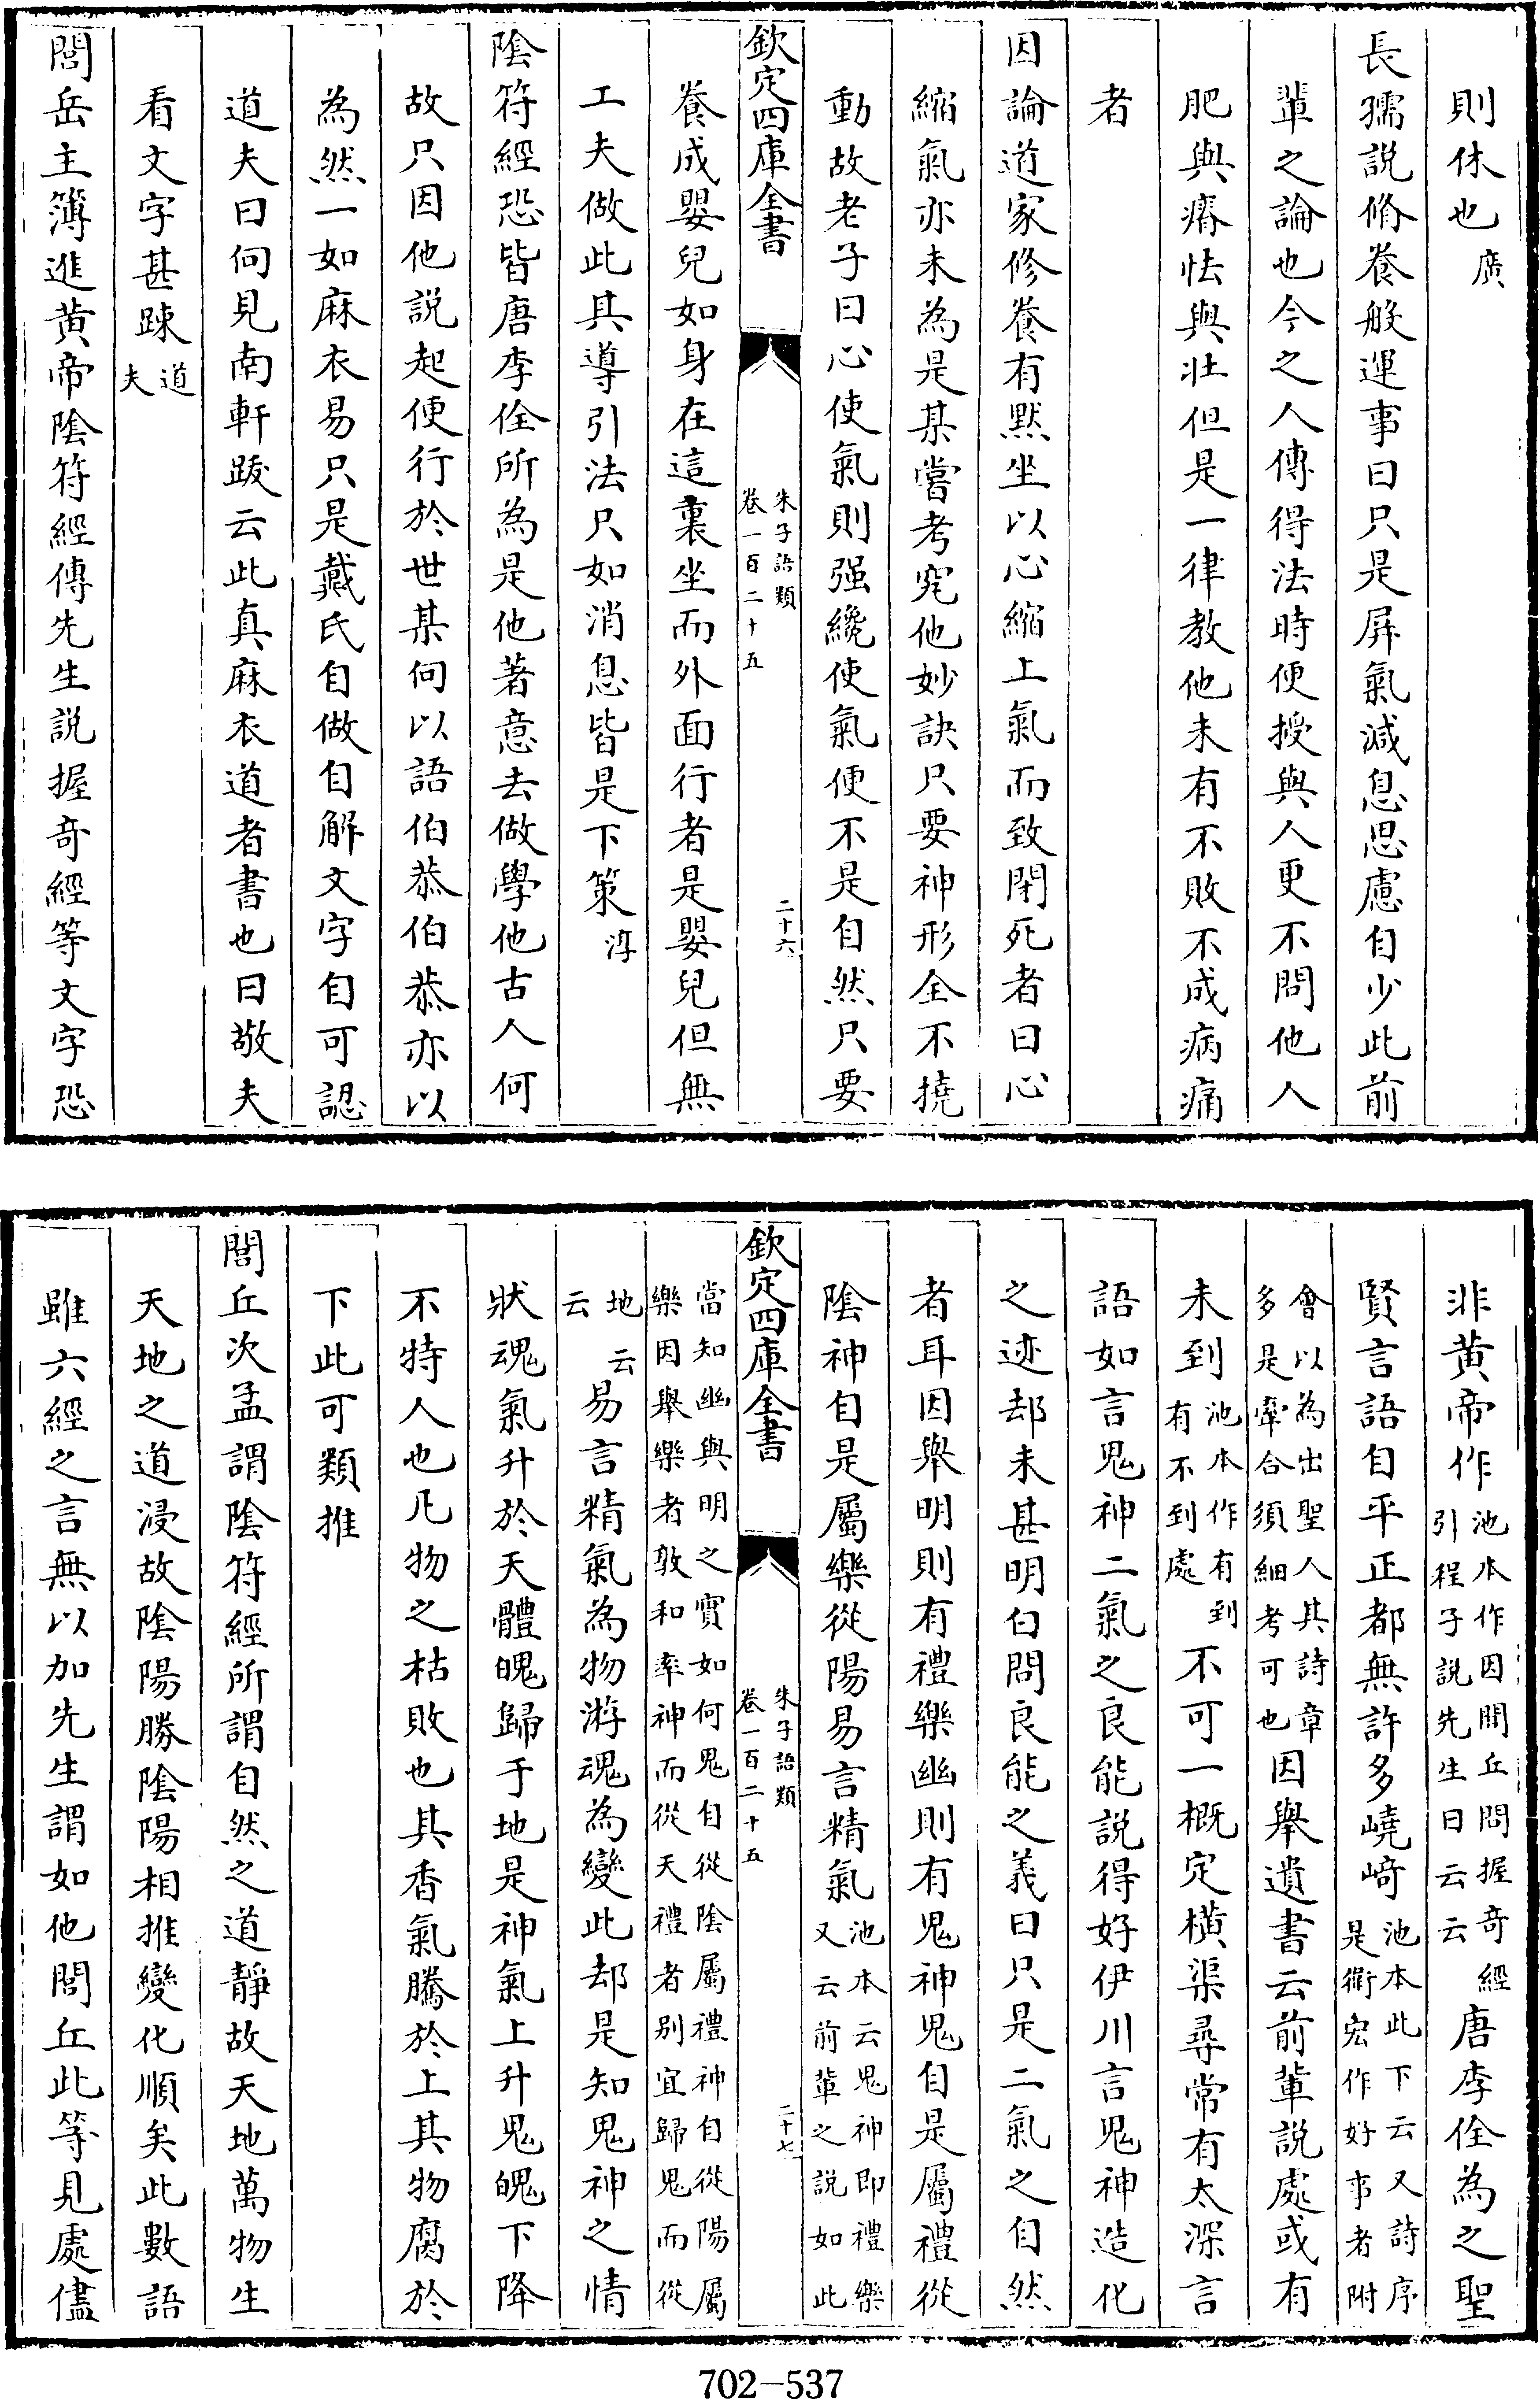 則休也廣
長孺説脩養般運事曰只是屏氣減息思慮自少此前
輩之論也今之人傳得法時便授與人更不問他人
肥與瘠怯與壯但是一律教他未有不敗不成病痛
者
因論道家修養有默坐以心縮上氣而致閉死者曰心
縮氣亦未為是某嘗考究他妙訣只要神形全不撓
動故老子曰心使氣則强纔使氣便不是自然只要
欽定四庫全書
朱子語類
卷一百二十五
二十六
養成嬰兒如身在這裏坐而外面行者是嬰兒但無
工夫做此其導引法只如消息皆是下策淳
陰符經恐皆唐李佺所為是他著意去做學他古人何
故只因他説起便行於世某向以語伯恭伯恭亦以
為然一如麻衣易只是戴氏自做自解文字自可認
道夫曰向見南軒跋云此真麻衣道者書也曰敬夫
看文字甚踈道夫
閭岳主簿進黄帝陰符經傳先生説握奇經等文字恐
非黄帝作池本作因閭丘問握奇經引程子説先生曰云云唐李佺為之聖
賢言語自平正都無許多嶢﨑池本此下云又詩序是衛宏作好事者附
會以為出聖人其詩章多是牽合須細考可也因舉遺書云前輩説處或有
未到池本作有到有不到處不可一概定横渠尋常有太深言
語如言鬼神二氣之良能説得好伊川言鬼神造化
之迹却未甚明白問良能之義曰只是二氣之自然
者耳因舉明則有禮樂幽則有鬼神鬼自是屬禮從
陰神自是屬樂從陽易言精氣池本云鬼神即禮樂又云前輩之説如此
欽定四庫全書
朱子語類
卷一百二十五
二十七
當知幽與明之實如何鬼自從陰屬禮神自從陽屬樂因舉樂者敦和率神而從天禮者别宜歸鬼而從
地云云易言精氣為物游魂為變此却是知鬼神之情
狀魂氣升於天體魄歸于地是神氣上升鬼魄下降
不特人也凡物之枯敗也其香氣騰於上其物腐於
下此可類推
閭丘次孟謂陰符經所謂自然之道靜故天地萬物生
天地之道浸故陰陽勝陰陽相推變化順矣此數語
雖六經之言無以加先生謂如他閭丘此等見處儘
702-537